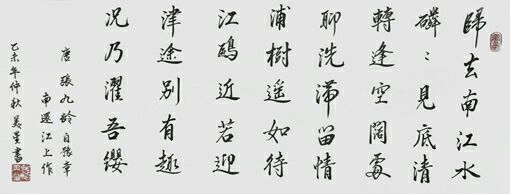 歸去南江水
磷〻見底清
轉逢空闊處
聊洗滯留情
浦樹遥如待
江鷗近若迎
津途别有趣
况乃濯吾纓
唐張九齡自豫章
南還江上作
乙未年仲秋美星書